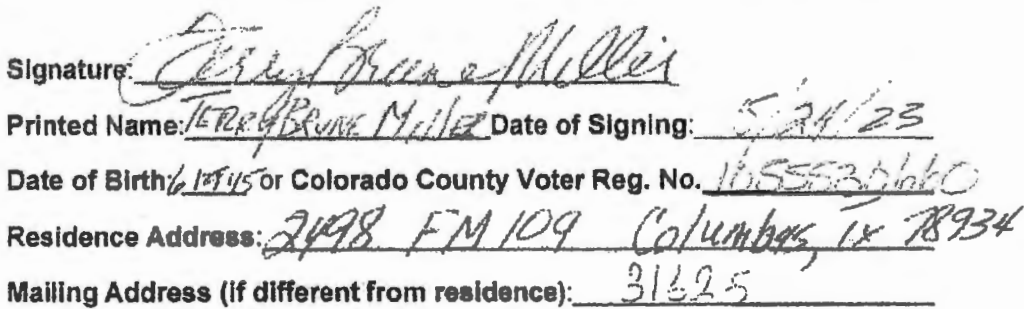 Signature: Terry Brune Miller
Printed Name: TERRY BRUNE Miller Date of Signing: 5/24/23
Date of Birth: or Colorado County Voter Reg. No.
Residence Address: 2498 FM 109 Columbus, Tx 78934
Mailing Address (if different from residence): 31625